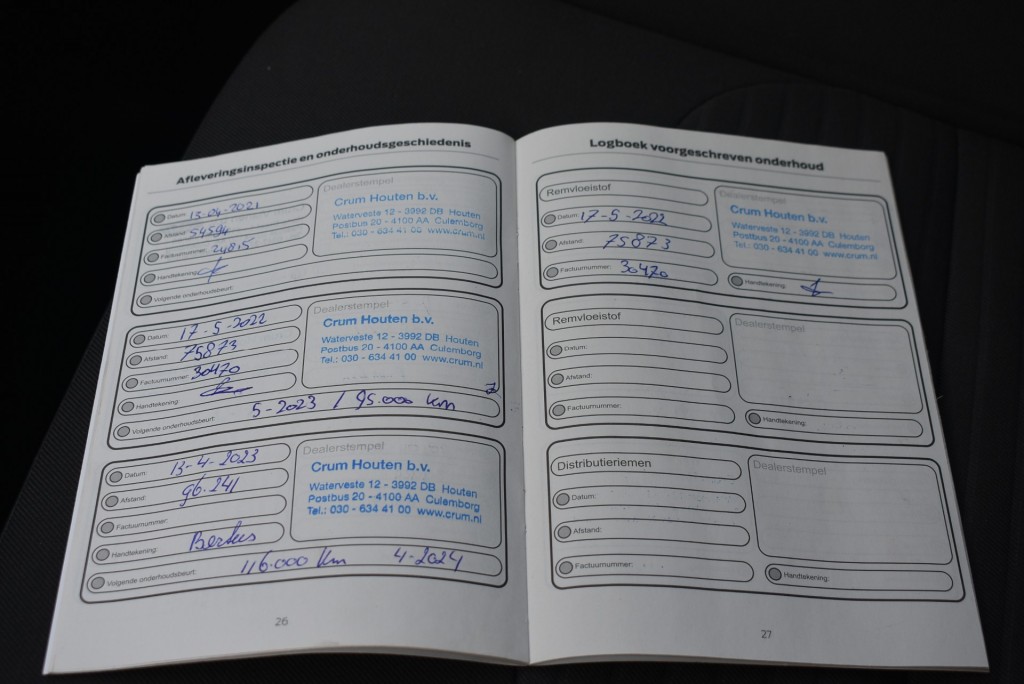 Afleveringsinspectie en onderhoudsgeschiedenis
Datum: 13-04-2021
Afstand: 54594
Factuurnummer: 24815
Handtekening:
Volgende onderhoudsbeurt:
Dealerstempel
Crum Houten b.v.
Waterveste 12 - 3992 DB Houten
Postbus 20 - 4100 AA Culemborg
Tel.: 030 - 634 41 00 www.crum.nl
Datum: 17-5-2022
Afstand: 75873
Factuurnummer: 30470
Handtekening:
Volgende onderhoudsbeurt: 5-2023 / 95.000 km
Dealerstempel
Crum Houten b.v.
Waterveste 12 - 3992 DB Houten
Postbus 20 - 4100 AA Culemborg
Tel.: 030 - 634 41 00 www.crum.nl
Datum: 13-4-2023
Afstand: 96.241
Factuurnummer:
Handtekening:
Volgende onderhoudsbeurt: 116.000 km 4-2024
Dealerstempel
Crum Houten b.v.
Waterveste 12 - 3992 DB Houten
Postbus 20 - 4100 AA Culemborg
Tel.: 030 - 634 41 00 www.crum.nl
26
Logboek voorgeschreven onderhoud
Remvloeistof
Datum: 17-5-2022
Afstand: 75873
Factuurnummer: 30470
Dealerstempel
Crum Houten b.v.
Waterveste 12 - 3992 DB Houten
Postbus 20 - 4100 AA Culemborg
Tel.: 030 - 634 41 00 www.crum.nl
Handtekening:
Remvloeistof
Datum:
Afstand:
Factuurnummer:
Dealerstempel
Handtekening:
Distributieriemen
Datum:
Afstand:
Factuurnummer:
Dealerstempel
Handtekening:
27